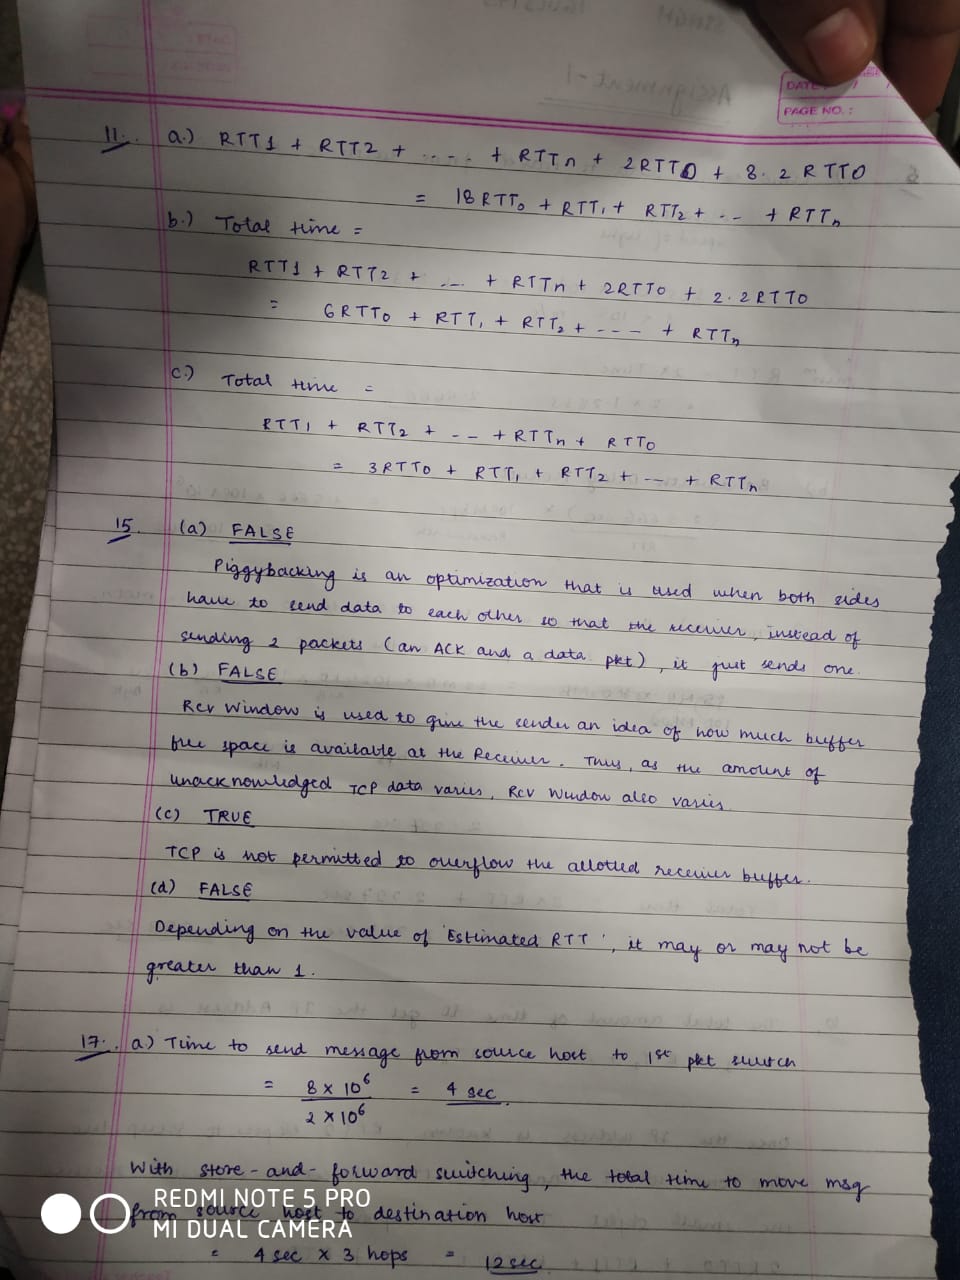 Assignment-1
DATE: / /
PAGE NO.:
11. a.) RTT1 + RTT2 + ..... + RTTn + 2RTTO + 8.2 RTTO
= 18 RTT₀ + RTT₁ + RTT₂ + -- + RTTₙ
b.) Total time =
RTT1 + RTT2 + ... + RTTn + 2RTTO + 2.2RTTO
= 6RTT₀ + RTT₁ + RTT₂ + --- + RTTₙ
c.) Total time =
RTT₁ + RTT₂ + -- + RTTₙ + RTTO
= 3RTTO + RTT₁ + RTT₂ + -- + RTTₙ
15. (a) FALSE
Piggybacking is an optimization that is used when both sides
have to send data to each other so that the receiver, instead of
sending 2 packets (an ACK and a data pkt), it just sends one.
(b) FALSE
Rcv Window is used to give the sender an idea of how much buffer
free space is available at the Receiver. Thus, as the amount of
unacknowledged TCP data varies, Rcv Window also varies
(c) TRUE
TCP is not permitted to overflow the allotted receiver buffer.
(d) FALSE
Depending on the value of 'Estimated RTT', it may or may not be
greater than 1.
17. a.) Time to send message from source host to 1st pkt switch
= 8 × 10⁶ / 2 × 10⁶ = 4 sec.
With store-and-forward switching, the total time to move msg
from source host to destination host
= 4 sec × 3 hops = 12 sec
REDMI NOTE 5 PRO
MI DUAL CAMERA